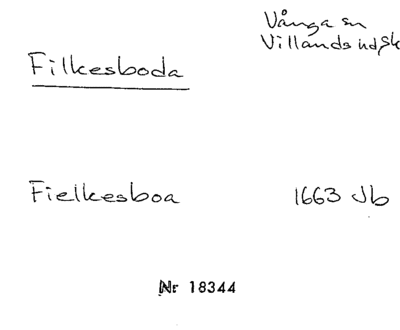 Filkesboda
Vånga sn
Villands hd Sk
Fielkesboa
1663 Jb
Nr 18344